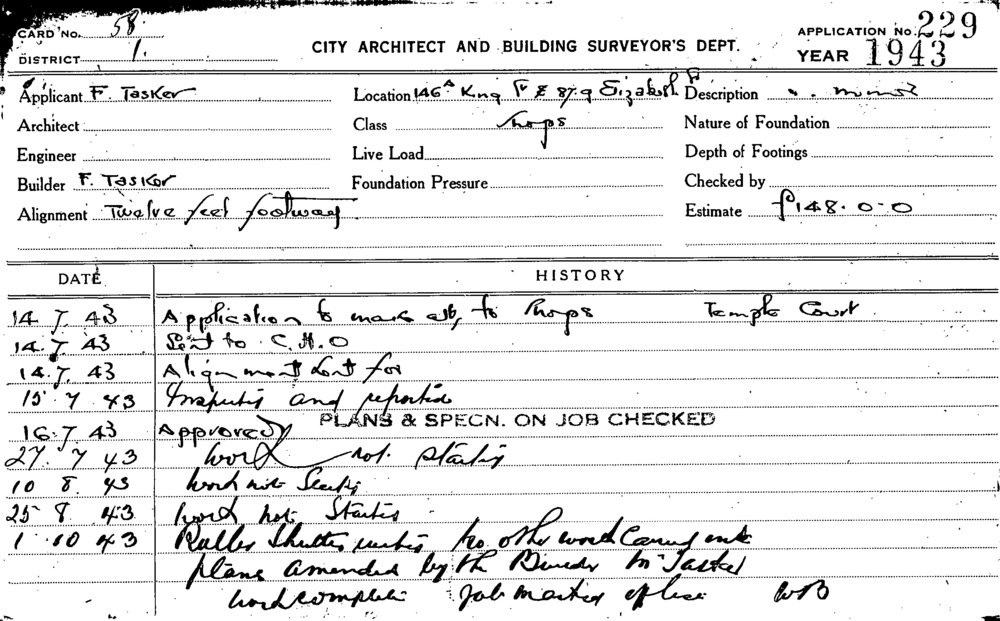 CARD No. 58
DISTRICT 1.
CITY ARCHITECT AND BUILDING SURVEYOR'S DEPT.
APPLICATION No. 229
YEAR 1943
Applicant F. Tasker Location 146A King St & 87-9 Elizabeth St Description
Architect Class Shops Nature of Foundation
Engineer Live Load Depth of Footings
Builder F. Tasker Foundation Pressure Checked by
Alignment Twelve feet footway Estimate £148.0.0
DATE HISTORY
14 7 43 Application to make alt, to Shops Temple Court
14.7 43 Sent to C.H.O
14.7. 43 Alignment sent for
15 7 43 Inspected and reported
PLANS & SPECN. ON JOB CHECKED
16.7 43 Approved
27. 7 43 Work not started
10 8. 43 Work not Started
25 8. 43 Work not Started
1 10 43 Roller Shutter no other work Carried out
plans amended by the Mr Tasker
Work complete Job marked off WB